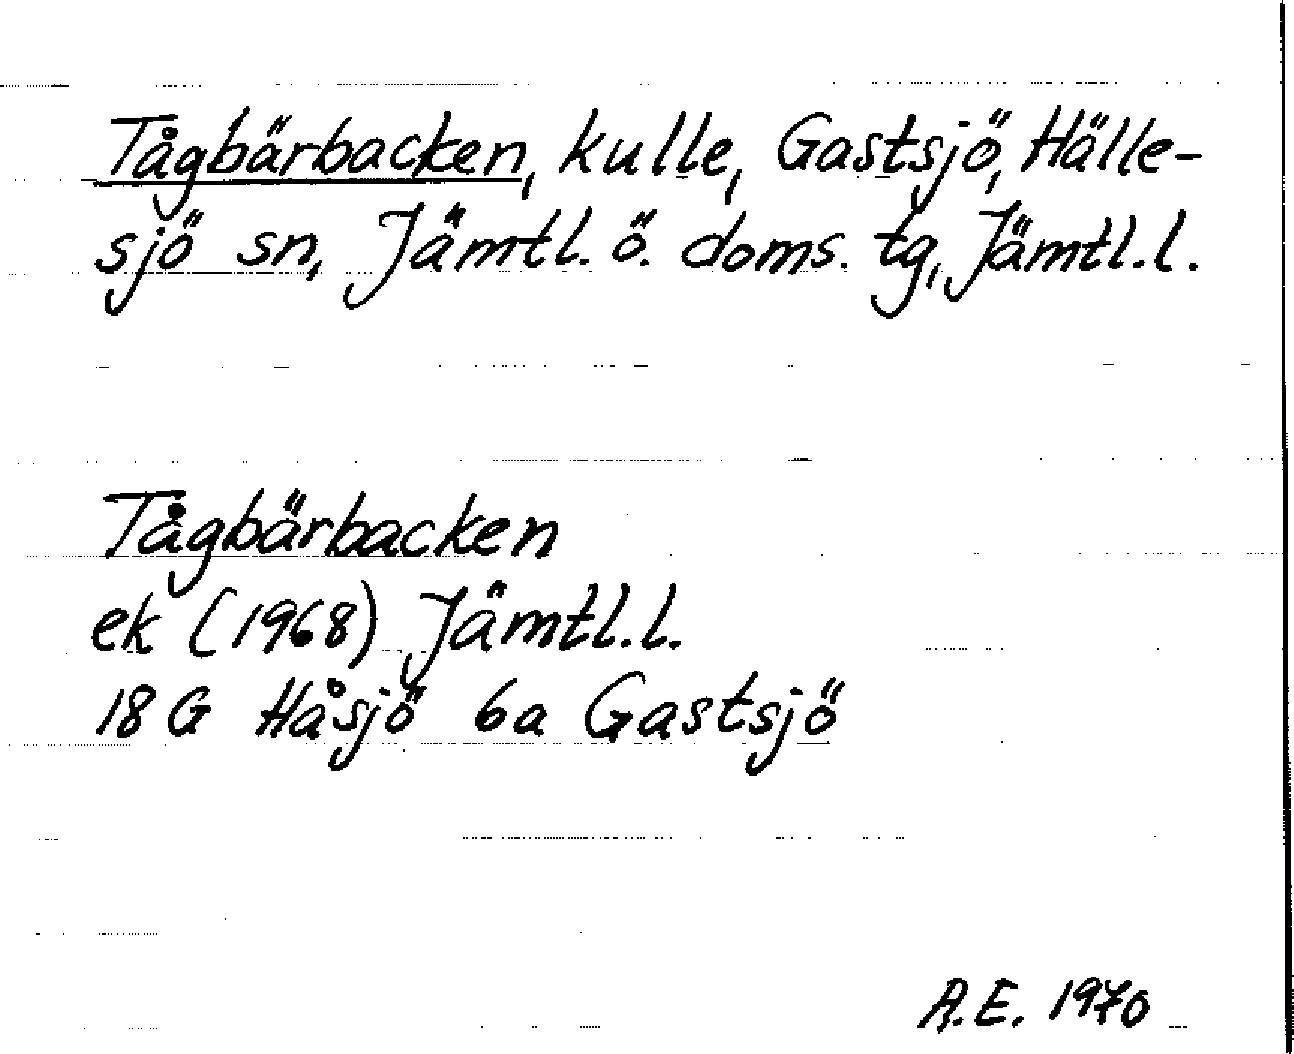 Tågbärbacken, kulle, Gastsjö, Hälle-
sjö sn, Jämtl. ö. doms. tg, Jämtl.l.
Tågbärbacken
ek (1968) Jämtl.l.
18 G Håsjö 6a Gastsjö
A.E. 1970